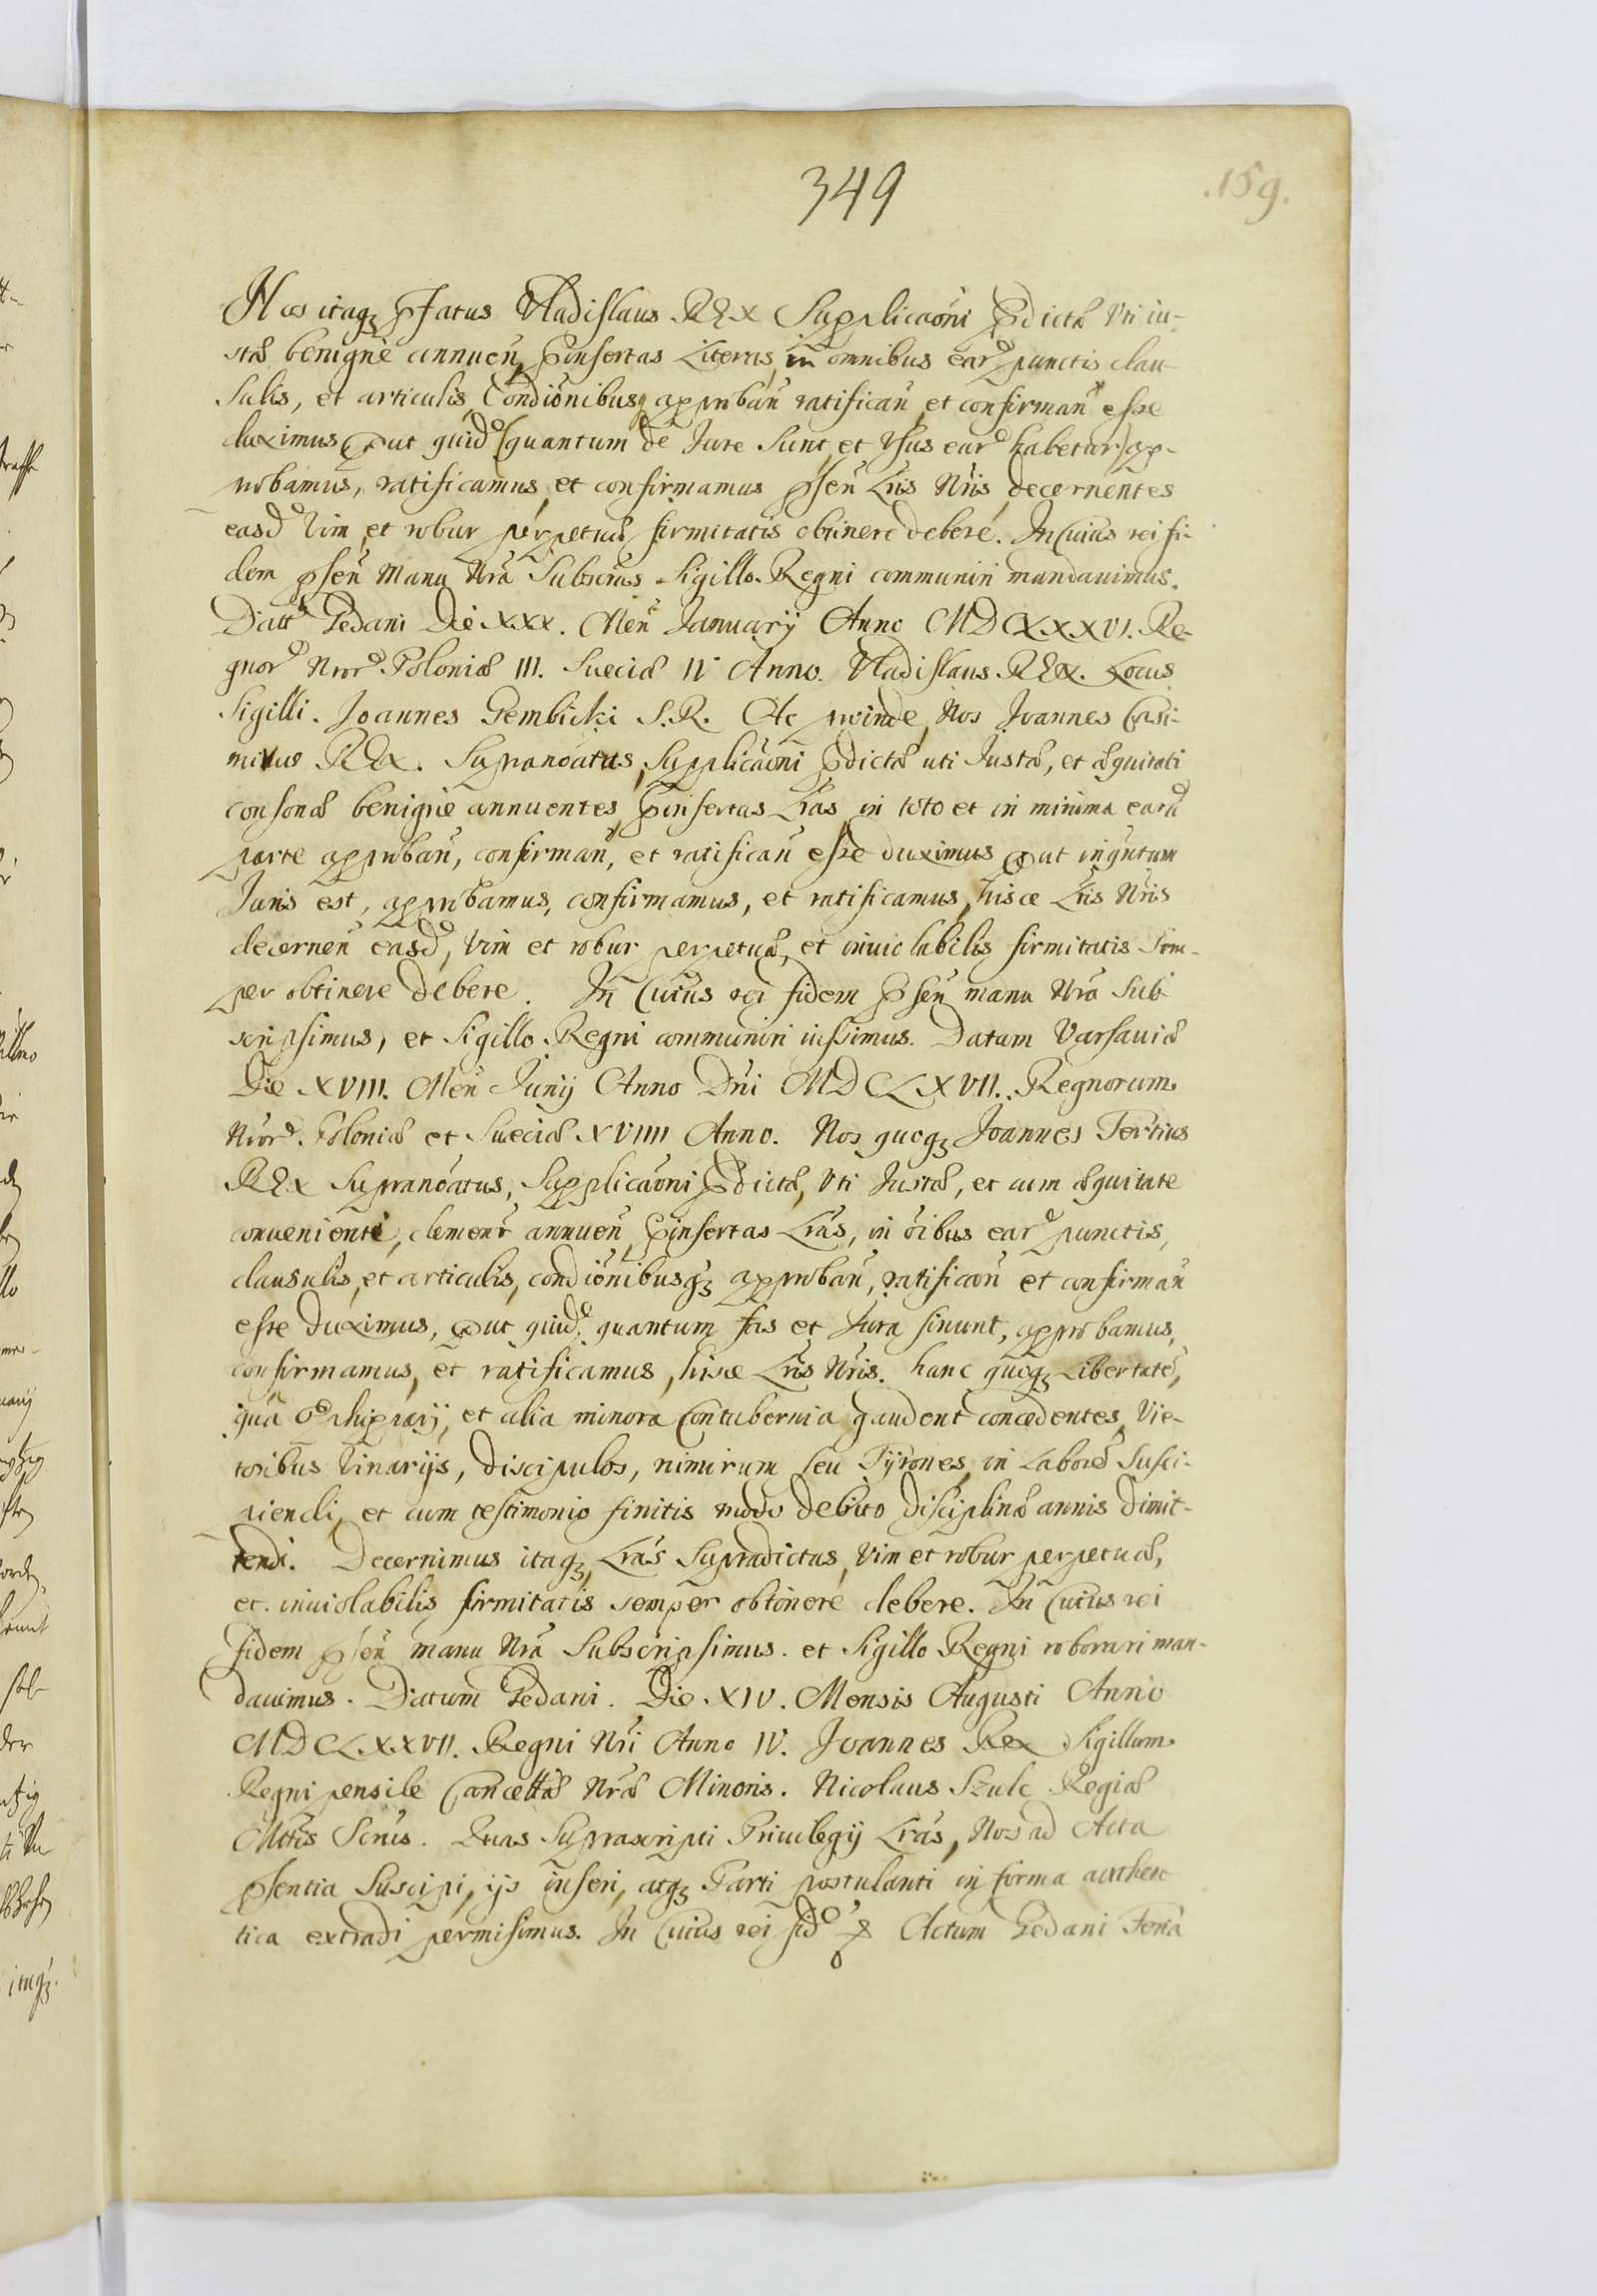 349
159.
Nos itaq₃ p̄fatus Vladislaus REX Supplicaōni p̄dictæ Vti iu-
stæ benigne annuen̄, p̄insertas Literas, in omnibus eard punctis clau
sulis, et articulis, Condiōnibusq₃ approban̄ ratifican̄, et confirman̄ esse
duximus, put quidd (quantum de Jure Sunt, et Vsus eard habetur) ap-
probamus, ratificamus, et confirmamus p̄sen̄ Lrīs Nrīs, decernentes
easd Vim, et robur perpetuæ firmitatis obtinere debere. In Cuius rei fi-
dem p̄sen̄ Manu Nrā Subscrīs Sigillo Regni communiri mandauimus.
Datt Gedani Die XXX. Men̄ Januarij Anno MDCXXXVI. Re-
gnord Nrord Poloniæ III. Sueciæ IV Anno. Vladislaus REX. Locus
Sigilli. Joannes Gembicki S.R. Ac proinde, Nos Joannes Casi-
mirus REX. Supranōatus, Supplicaōni p̄dictæ uti Justæ, et æquitati
consonæ benigne annuentes, p̄insertas Lrās, in toto et in minima eard
parte approban̄, confirman̄, et ratifican̄ esse duximus put inquntum
Juris est, approbamus, confirmamus, et ratificamus, hisce Lrīs Nrīs
decernen̄ easd, Vim et robur perpetuæ, et inuiolabilis firmitatis sem-
per obtinere debere. In Cuius rei fidem p̄sen̄ manu Nrā Sub
scripsimus, et Sigillo Regni communiri iussimus. Datum Varsauiæ
Die XVIII. Men̄ Junij Anno Dn̄i MDCLXVII. Regnorum
Nrord. Poloniæ et Sueciæ XVIIII Anno. Nos quoq₃ Joannes Tertius
REX Supranōatus, Supplicaōni p̄dictæ, Vti Justæ, et cum æquitate
conuenienti, clementr annuen̄, p̄insertas Lrās, in oībus eard punctis,
clausulis, et articulis, condiōnibusq₃ approban̄, ratifican̄ et confirman̄
esse duximus, put quidd quantum fas et Jura sinunt, approbamus,
confirmamus, et ratificamus, hisce Lrīs Nrīs. hanc quoq₃ Libertatē,
quā et alia minora Contubernia gaudent concedentes, Vie-
toribus Vinarijs, discipulos, nimirum seu Tyrones, in Laborē Susci-
piendi, et cum testimonio finitis modo debito disciplinæ annis dimit-
tendi. Decernimus itaq₃, Lrās Supradictas, Vim et robur perpetuæ,
et inuiolabilis firmitatis semper obtinere debere. In Cuius rei
fidem p̄sen̄ manu Nrā Subscripsimus. et Sigillo Regni roborari man-
dauimus. Datum Gedani. Die XIV. Mensis Augusti Anno
MDCLXXVII. Regni Nrī Anno IV. Joannes Rex Sigillum
Regni pensile Cancellæ Nræ Minoris. Nicolaus Szulc Regiæ
Mttis Scrīus. Quas Suprascripti Priuilegij Lrās, Nos ad Acta
p̄sentia Suscipi, ijs inseri, atq₃ Parti postulanti in forma authen
tica extradi permisimus. In Cuius rei fid Actum Gedani Feria